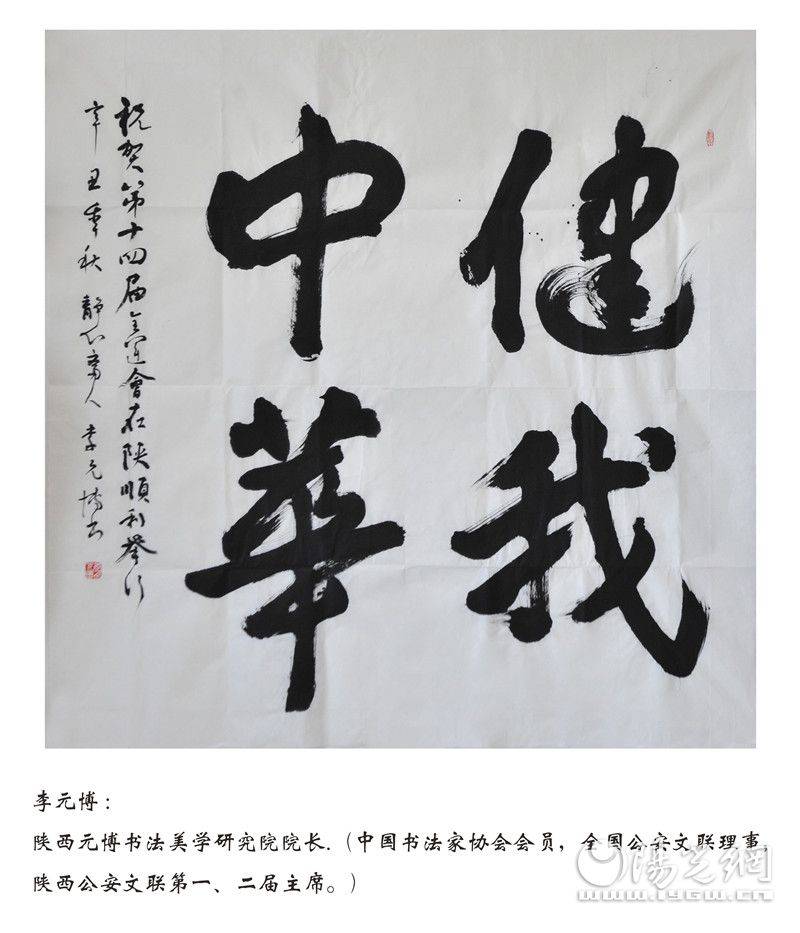 健我
中華
祝贺第十四届全运會在陕順利举行
辛丑季秋 静心斋人 李元博书
李元博：
陕西元博书法美学研究院院长.（中国书法家协会会员，全国公安文联理事，
陕西公安文联第一、二届主席。）
www.iygw.cn